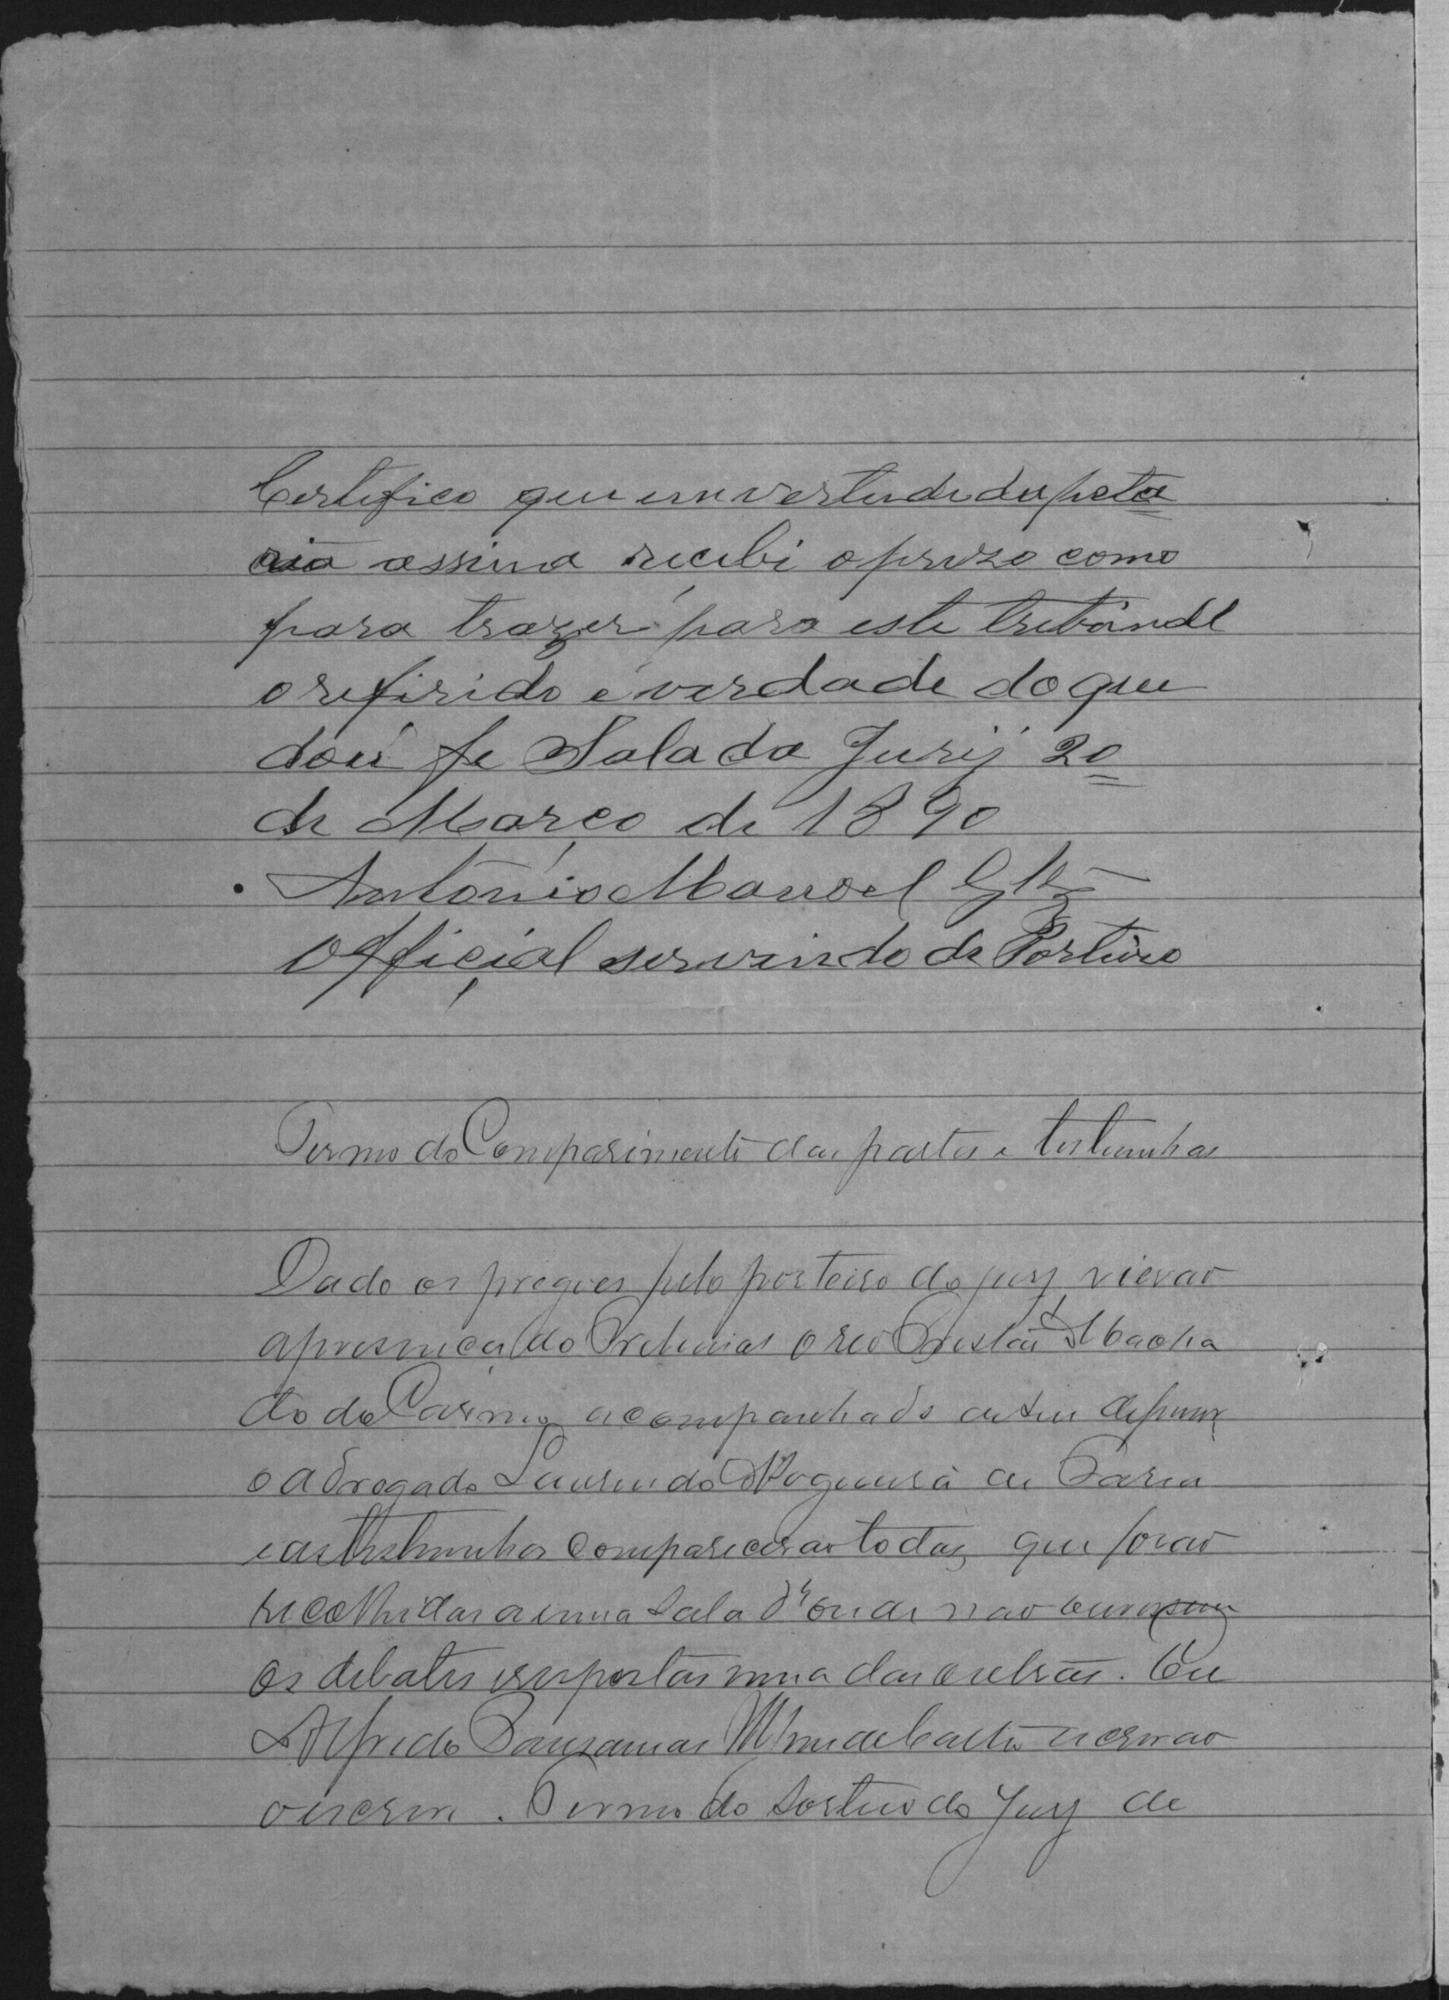 Certifico que em vertude da peta
ciã assima recebi o prezo como
para trazer para este tribûnal
o refirido é verdade do que
doú fe Sala da Jurÿ 20
de Março de 1890
Antônio Manoel Glz
Official servindo de Porteiro
Termo do Comparimento das partes e testemunhas
Dado os pregoes pelo porteiro do jury, vierão
a presença do o reo Cristão Macha
do do Carmo acompanhado de seu
o advogado Laurindo Nogueira de Faria
e as testemunhas comparecerão todas, que forão
recolhidas a uma sala d'onde não ouvissem
os debates e respostas uma das outras. Eu
Alfredo escrivão
o escrevi. Termo do sorteio do Jury de